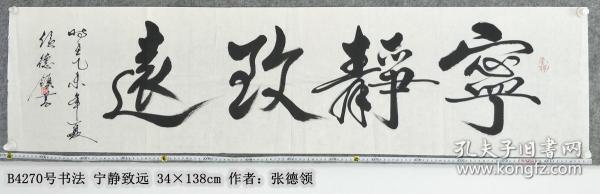 寧靜致遠
时在乙未年夏
张德领书
孔夫子旧书网
B4270号书法 宁静致远 34×138cm 作者：张德领